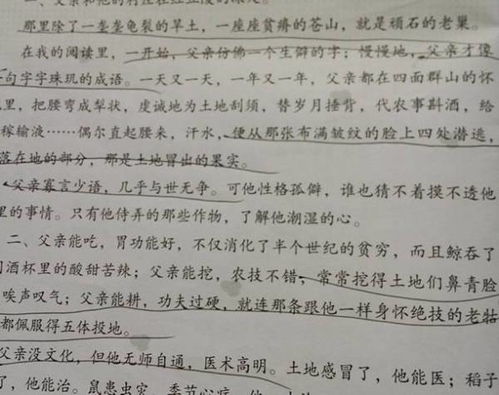 一、父亲和他的村庄在红土漫的深处。
那里除了一垄垄龟裂的旱土，一座座贫瘠的苍山，就是顽石的老巢。
在我的阅读里，一开始，父亲仿佛一个生僻的字；慢慢地，父亲才像
句字字珠玑的成语。一天又一天，一年又一年，父亲都在四面群山的怀
里，把腰弯成犁状，虔诚地为土地刮须，替岁月捶背，代农事斟酒，给
稼输液……偶尔直起腰来，汗水，便从那张布满皱纹的脸上四处潜逃，
落在地的部分，那是土地冒出的果实。
父亲寡言少语，几乎与世无争。可他性格孤僻，谁也猜不着摸不透他
里的事情。只有他侍弄的那些作物，了解他潮湿的心。
二、父亲能吃，胃功能好，不仅消化了半个世纪的贫穷，而且鲸吞了
酒杯里的酸甜苦辣；父亲能挖，农技不错，常常挖得土地们鼻青脸
唉声叹气；父亲能耕，功夫过硬，就连那条跟他一样身怀绝技的老牯
都佩服得五体投地。
父亲没文化，但他无师自通，医术高明。土地感冒了，他能医；稻子
了，他能治。鼠患虫灾，季节心疼，他